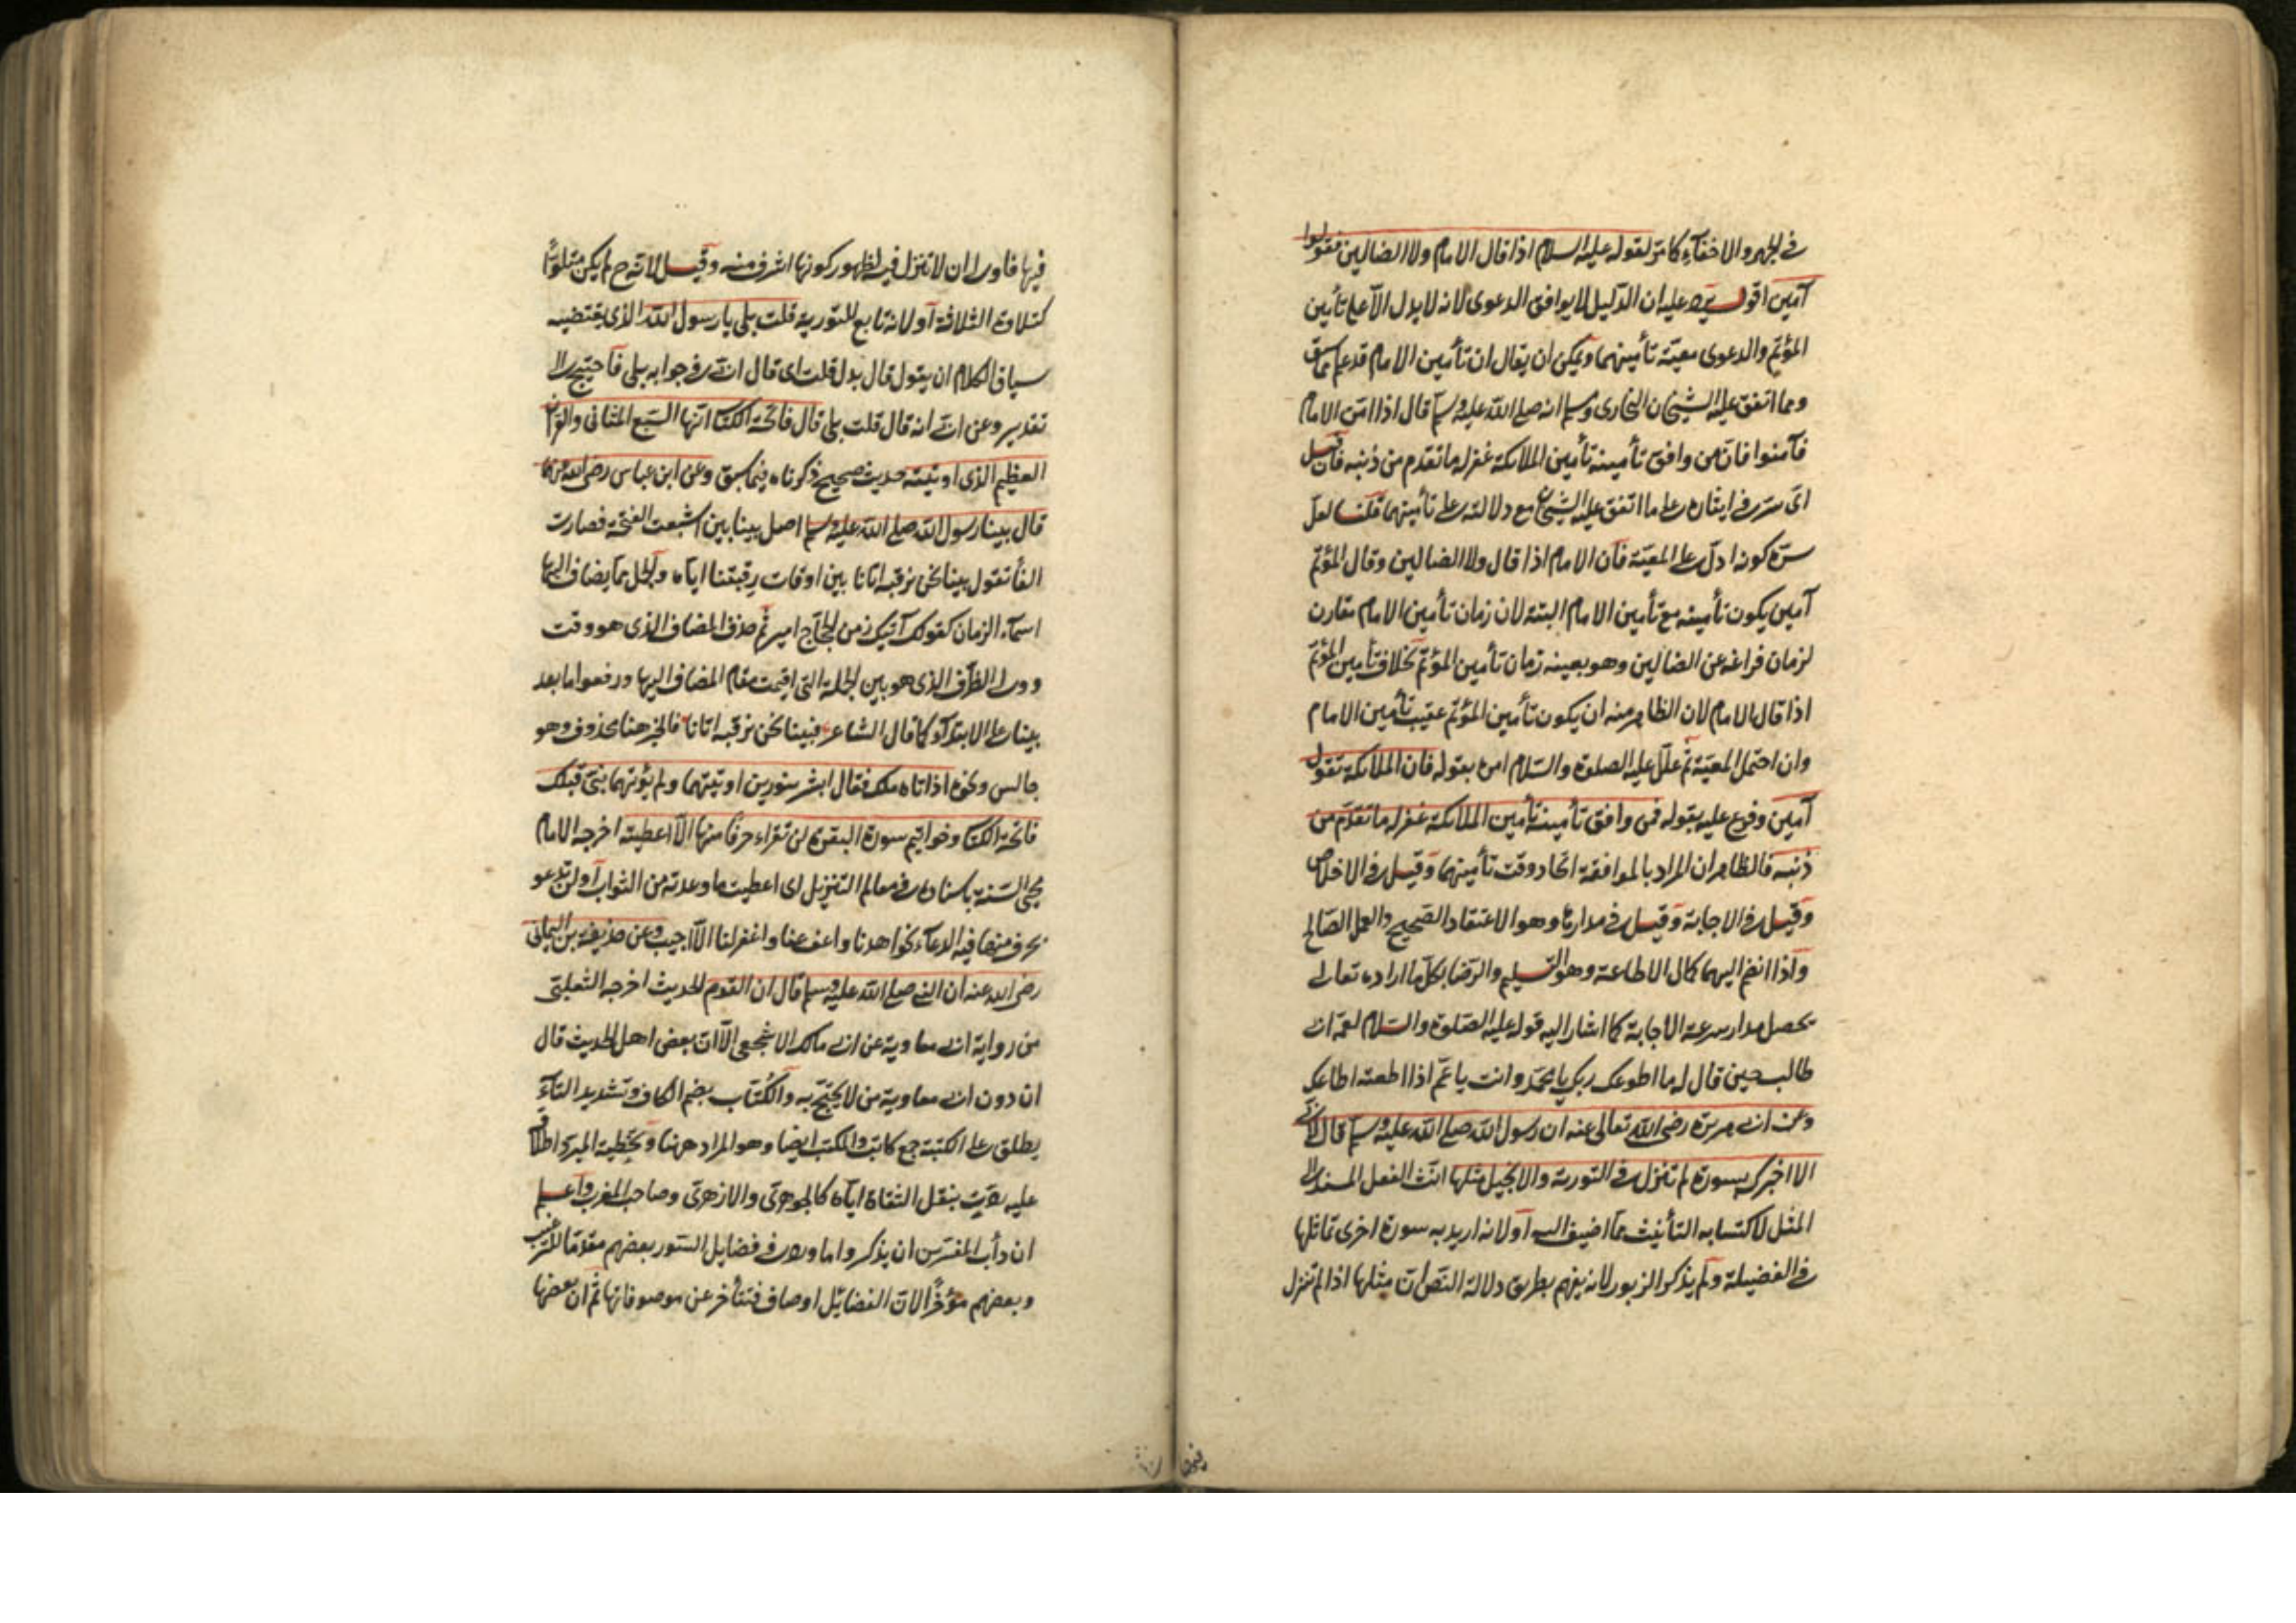 في الجهر والاخفآء كما مر لقوله عليه السلام اذا قال الامام ولا الضالين فقولوا
آمين اقول يرد عليه ان الدليل لا يوافق الدعوى لانه لا يدل الّا على تأمين
المؤتمّ والدعوى معيّة تأمينهما ويمكن ان يقال ان تأمين الامام قد علم مما سبق
ومما اتفق عليه الشيخان البخارى ومسلم انه صلى الله عليه وسلم قال اذا امّن الامام
فآمنوا فانّ من وافق تأمينه تأمين الملائكة غفر له ما تقدم من ذنبه فان قيل
اىّ سرّ في ايثاره على ما اتفق عليه الشيخان مع دلالته على تأمينهما قلنا لعل
سرّه كونه ادلّ على المعيّة فان الامام اذا قال ولا الضالين وقال المؤتمّ
آمين يكون تأمينه مع تأمين الامام البتة لان زمان تأمين الامام مقارن
لزمان فراغه عن الضالين وهو بعينه زمان تأمين المؤتمّ بخلاف تأمين المؤتمّ
اذا قال الامام لان الظاهر منه ان يكون تأمين المؤتمّ عقيب تأمين الامام
وان احتمل المعيّة ثم علّل عليه الصلوة والسّلام امره بقوله فان الملائكة تقول
آمين وفرع عليه بقوله فمن وافق تأمينه تأمين الملائكة غفر له ما تقدّم من
ذنبه فالظاهر ان المراد بالموافقة اتّحاد وقت تأمينهما وقيل في الاخلاص
وقيل في الاجابة وقيل في مدارها وهو الاعتقاد الصحيح والعمل الصّالح
واذا انضم اليهما كمال الاطاعة وهو التسليم والرّضا بكلّ ما اراده تعالى
يحصل مدار سرعة الاجابة كما اشار اليه قوله عليه الصّلوة والسّلام لعمّه ابى
طالب حين قال له ما اطوعك ربك يا محمّد وانت يا عمّ اذا اطعته اطاعك
وعن ابى هريرة رضى الله تعالى عنه ان رسول الله صلى الله عليه وسلم قال لابىّ
الا اخبرك بسورة لم تنزل في التورية والانجيل مثلها انّث الفعل المسند الى
المثل لاكتسابه التأنيث ممّا اضيف اليه او لانه اريد به سورة اخرى تماثلها
في الفضيلة ولم يذكر الزبور لانه يفهم بطريق دلالة النصّ انّ مثلها اذا لم تنزل
فيها فاولى ان لا تنزل فيه لظهور كونها اشرف منه وقيل لانّه ح لم يكن متلوّاً
كتلاوة الثلاثة او لانه تابع للتورية قلت بلى يا رسول الله الذى يقتضيه
سياق الكلام ان يقول قال بدل قلت اى قال ابىّ في جوابه بلى فاحتيج الى
تقدير وعن ابىّ انه قال قلت بلى قال فاتحة الكتاب انّها السّبع المثانى والقرآن
العظيم الذى اوتيته حديث صحيح ذكرناه فيما سبق وعن ابن عباس رضى الله عنهما
قال بينا رسول الله صلى الله عليه وسلم اصل بينا بين اشبعت الفتحة فصارت
الفاً تقول بينا نحن نرقبه اتانا بين اوقات رقبتنا ايّاه والجمل ممّا يضاف اليها
اسمآء الزمان كقولك آتيك زمن الحجّاج امير ثم حذف المضاف الذى هو وقت
وولى الظرف الذى هو بين الجملة التى اقيمت مقام المضاف اليها ورفعوا ما بعد
بينا على الابتدآء كما قال الشاعر فبينا نحن نرقبه اتانا فالخبر هنا محذوف وهو
جالس ونحوه اذ اتاه ملك فقال ابشر بنورين اوتيتهما ولم يؤتهما نبىّ قبلك
فاتحة الكتاب وخواتيم سورة البقرة لن تقراء حرفاً منها الّا اعطيته اخرجه الامام
محيى السّنة باسناده في معالم التنزيل اى اعطيت ما وعدته من الثواب او لن تدعو
بحرف منها فيه الدعآء نحو اهدنا واعف عنا واغفر لنا الّا اجيب وعن حذيفة بن اليمان
رضى الله عنه ان النبى صلى الله عليه وسلم قال ان القوم الحديث اخرجه الثعلبىّ
من رواية ابى معاوية عن ابى مالك الاشجعى الّا انّ بعض اهل الحديث قال
ان دون ابى معاوية من لا يحتجّ به والكُتّاب بضم الكاف وتشديد التآء
يطلق على الكتبة جمع كاتب والمكتب ايضا وهو المراد هنا وتخطية المبرد اطلاقه
عليه ردّت بنقل الثقاة ايّاه كالجوهرىّ والازهرىّ وصاحب المغرب واعلم
ان دأب المفسّرين ان يذكروا ما ورد في فضايل السّور بعضهم مقدّما للترغيب
وبعضهم مؤخّراً لانّ الفضايل اوصاف فتتأخّر عن موصوفاتها ثم ان بعضها